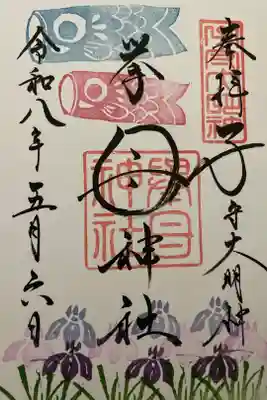 奉拝 子守大明神
挙母神社
令和八年五月六日
挙母神社